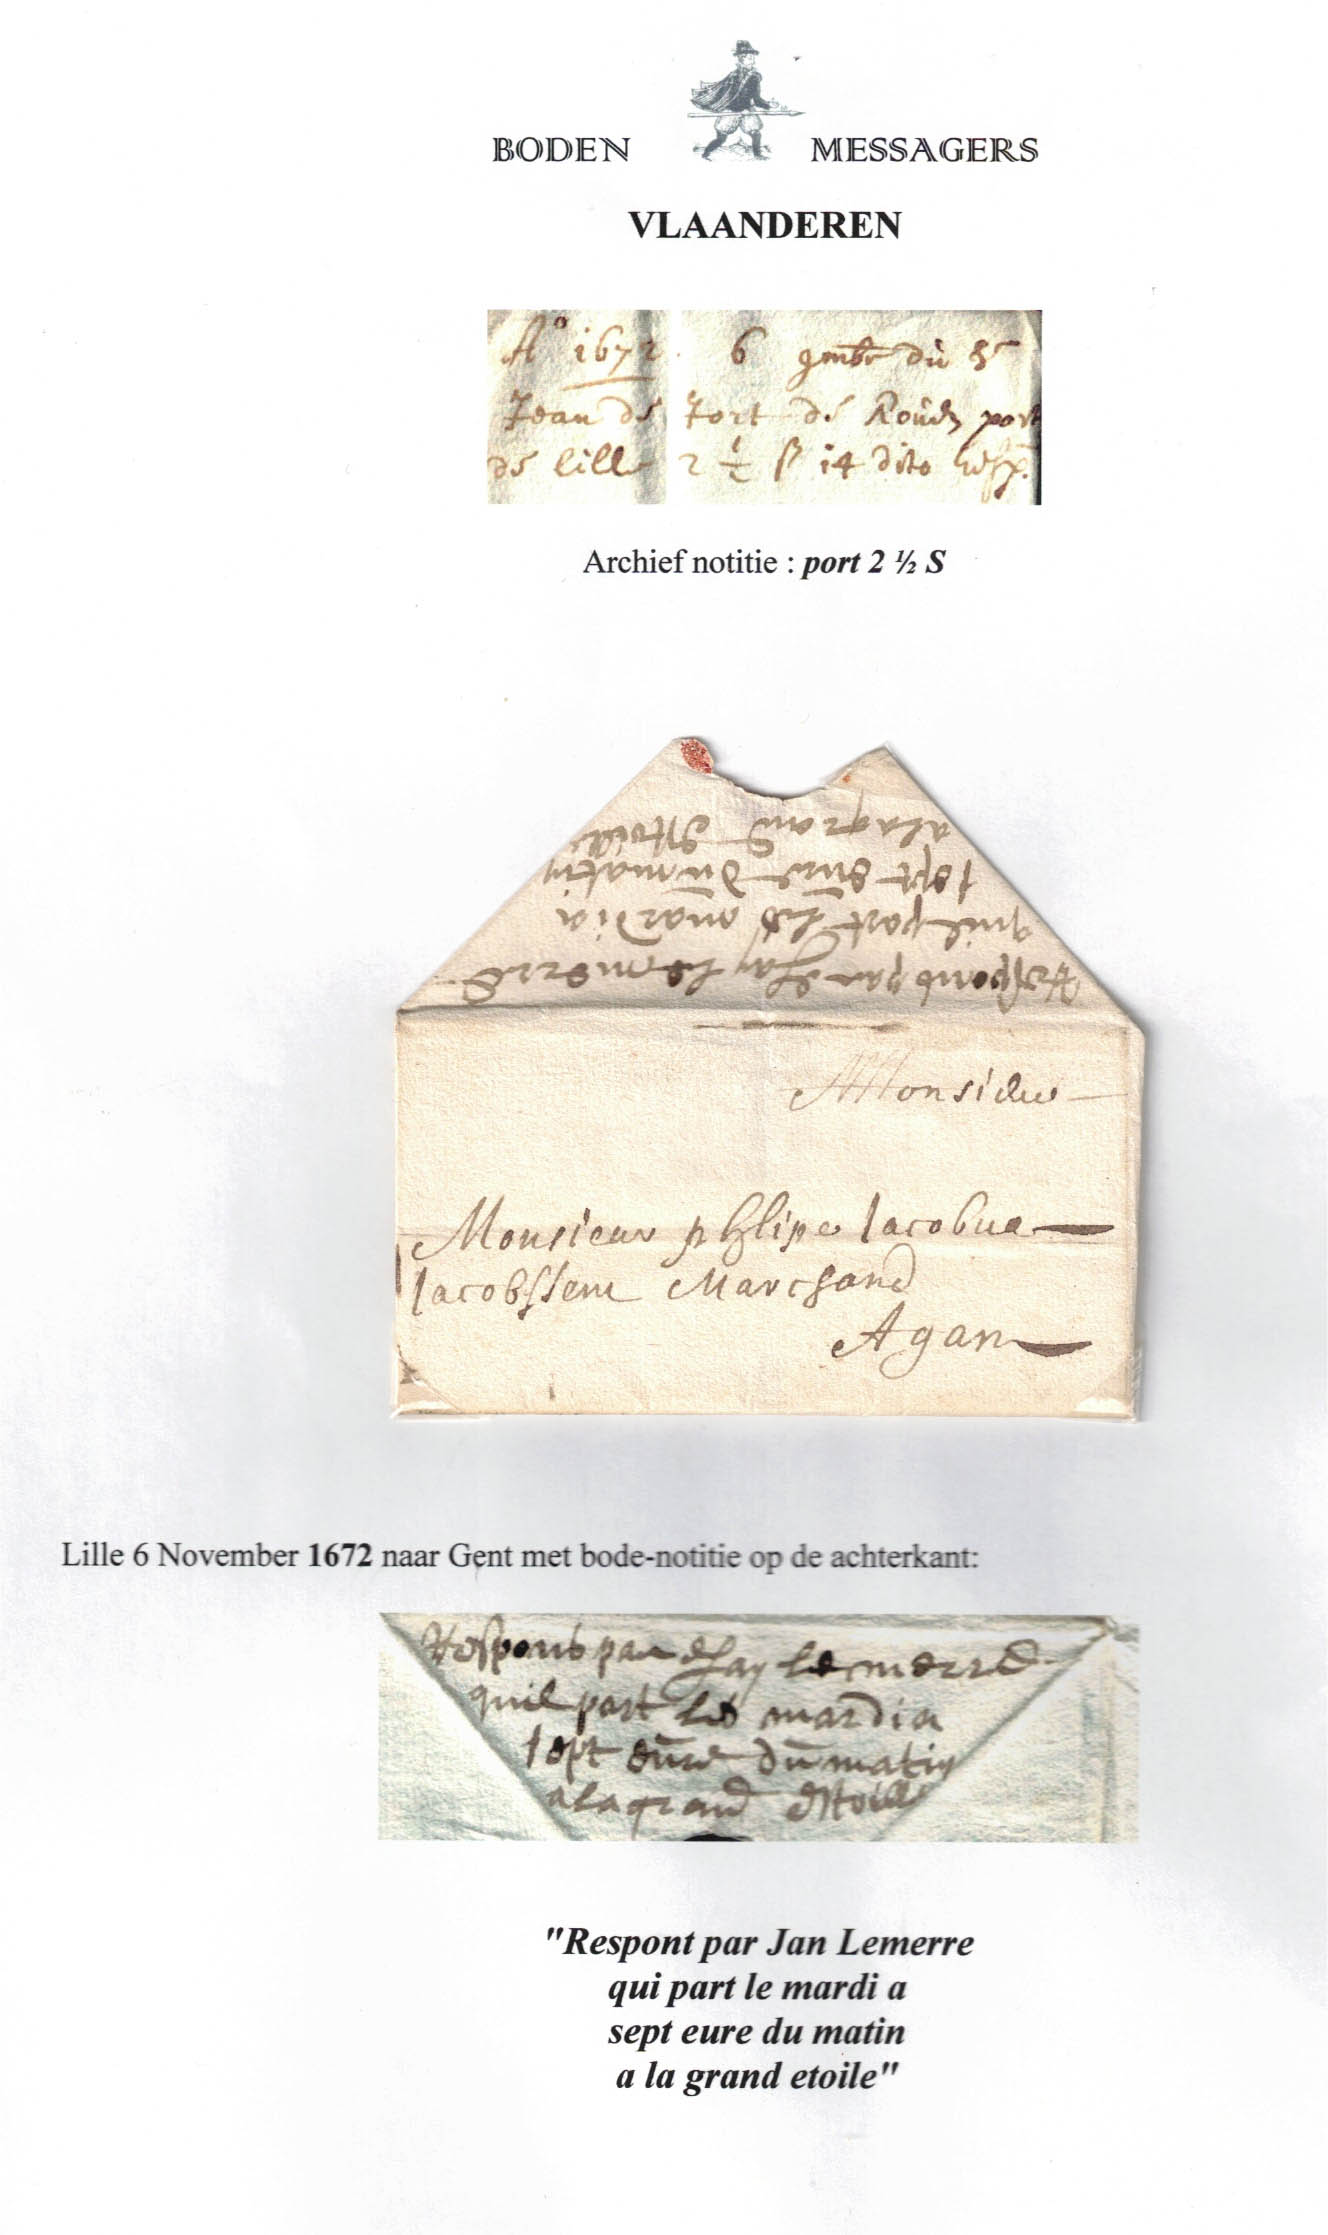 BODEN MESSAGERS
VLAANDEREN
A° 1672. 6 9mbr du 8e
Jean de fort de
de lille 2 1/2 ß 14 dito Resp.
Archief notitie : port 2 ½ S
alagrand Estoille
sept eure du matin
quil part le mardi a
Respons par Jan Lemerre
Monsieur
Monsieur phlipe Jacobus
Jacobssene Marchand
Agan
Lille 6 November 1672 naar Gent met bode-notitie op de achterkant:
Respons par Jan Lemerre
quil part le mardi a
sept eure du matin
alagrand Estoille
"Respont par Jan Lemerre
qui part le mardi a
sept eure du matin
a la grand etoile"